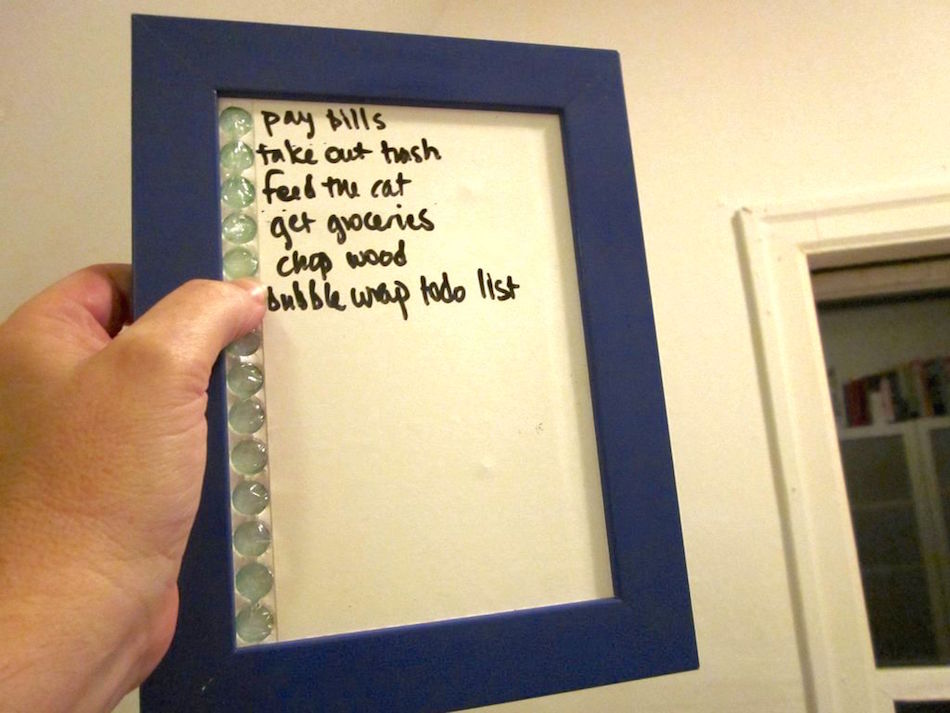 pay bills
take out trash
feed the cat
get groceries
chop wood
bubble wrap todo list